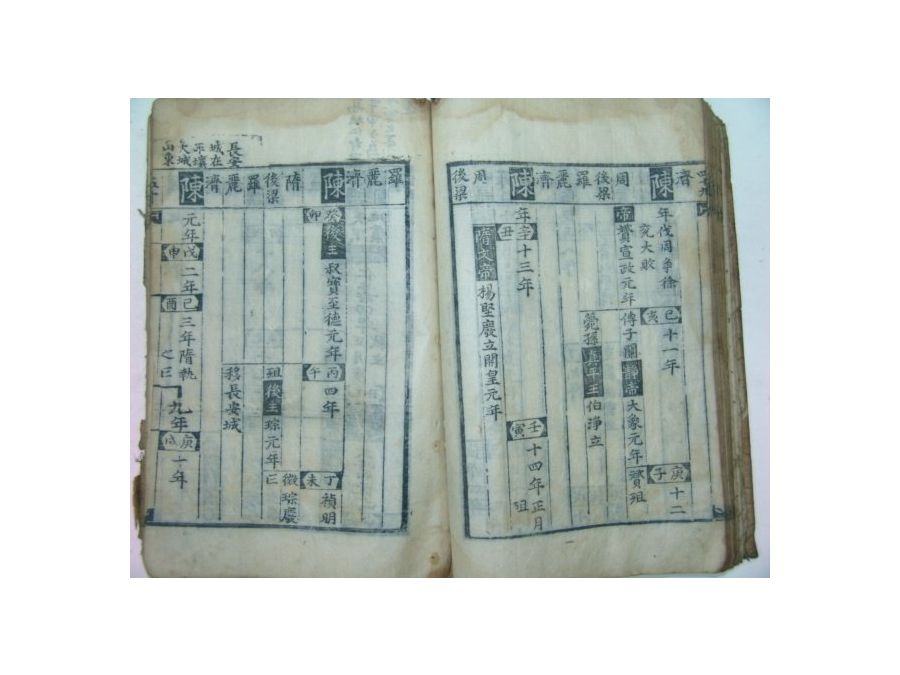 四十九
濟
陳
周
後梁
羅
麗
濟
陳
周
後梁
年伐周爭徐
兗大敗
己亥
十一年
庚子
十二
帝贇宣政元年
傳子闡靜帝大象元年贇殂
薨孫眞平王伯淨立
年
辛丑
十三年
壬寅
十四年正月
殂
隋文帝楊堅廢立開皇元年
羅
麗
濟
陳
隋
後梁
羅
麗
濟
陳
癸卯
後主叔寶至德元年
丙午
四年
丁未
禎明
殂後主琮元年
徵琮廢
亡
移長安城
元年
戊申
二年
己酉
三年隋執
之亡
九年
庚戌
十年
長安
城在
平壤
大城
山東